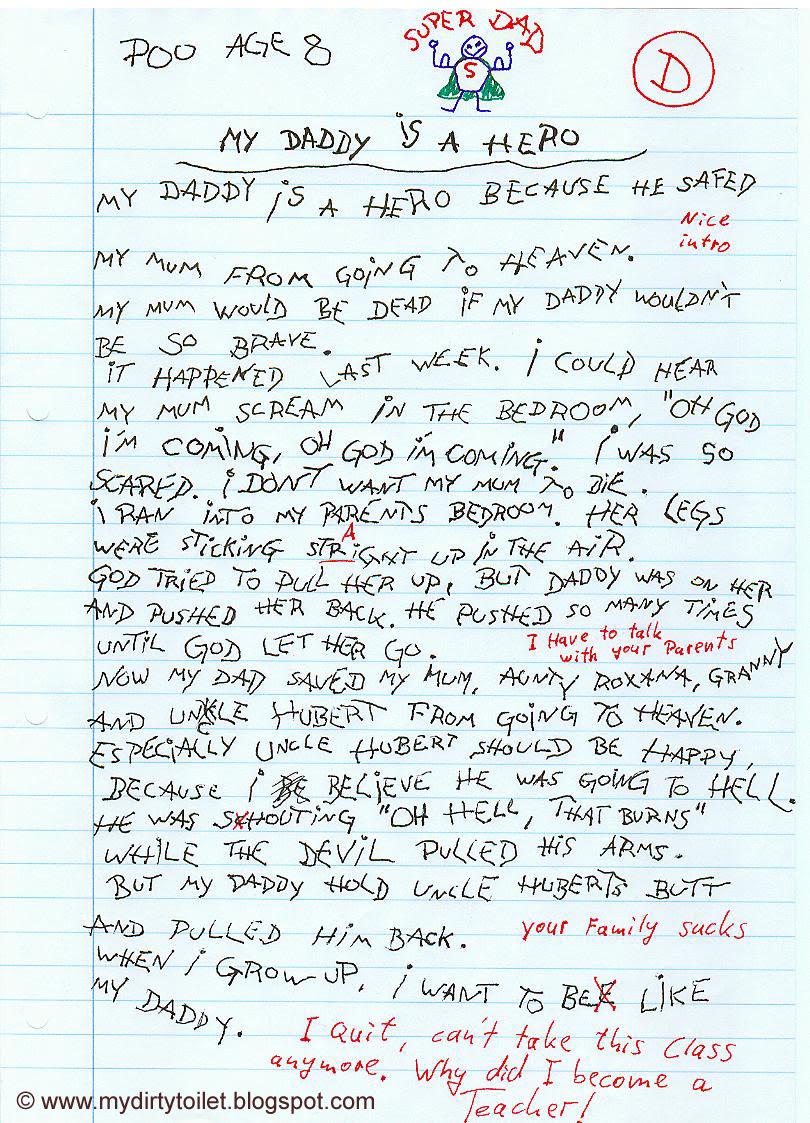 SUPER DAD
POO AGE 8
S
D
MY DADDY iS A HERO
MY DADDY iS A HERO BECAUSE HE SAFED
Nice
intro
MY MUM FROM GOiNG TO HEAVEN.
MY MUM WOULD BE DEAD iF MY DADDY WOULDN'T
BE SO BRAVE.
iT HAPPENED LAST WEEK. i COULD HEAR
MY MUM SCREAM iN THE BEDROOM, "OH GOD
i'M COMiNG, OH GOD i'M COMiNG." i WAS SO
SCARED. i DON'T WANT MY MUM TO DiE.
i RAN iNTO MY PARENTS BEDROOM. HER LEGS
A
WERE STiCKiNG STRiGHT UP iN THE AiR.
GOD TRiED TO PULL HER UP, BUT DADDY WAS ON HER
AND PUSHED HER BACK. HE PUSHED SO MANY TiMES
UNTiL GOD LET HER GO.
I Have to talk
with your Parents
NOW MY DAD SAVED MY MUM, AUNTY ROXANA, GRANNY
AND UNCLE HUBERT FROM GOiNG TO HEAVEN.
ESPECiALLY UNCLE HUBERT SHOULD BE HAPPY,
BECAUSE i BELiEVE HE WAS GOiNG TO HELL.
HE WAS SHOUTiNG "OH HELL, THAT BURNS"
WHiLE THE DEViL PULLED HiS ARMS.
BUT MY DADDY HOLD UNCLE HUBERTS BUTT
AND PULLED HiM BACK.
your Family sucks
WHEN i GROW UP, i WANT TO BE LiKE
MY DADDY.
I Quit, can't take this Class
anymore. Why did I become a
Teacher!
© www.mydirtytoilet.blogspot.com